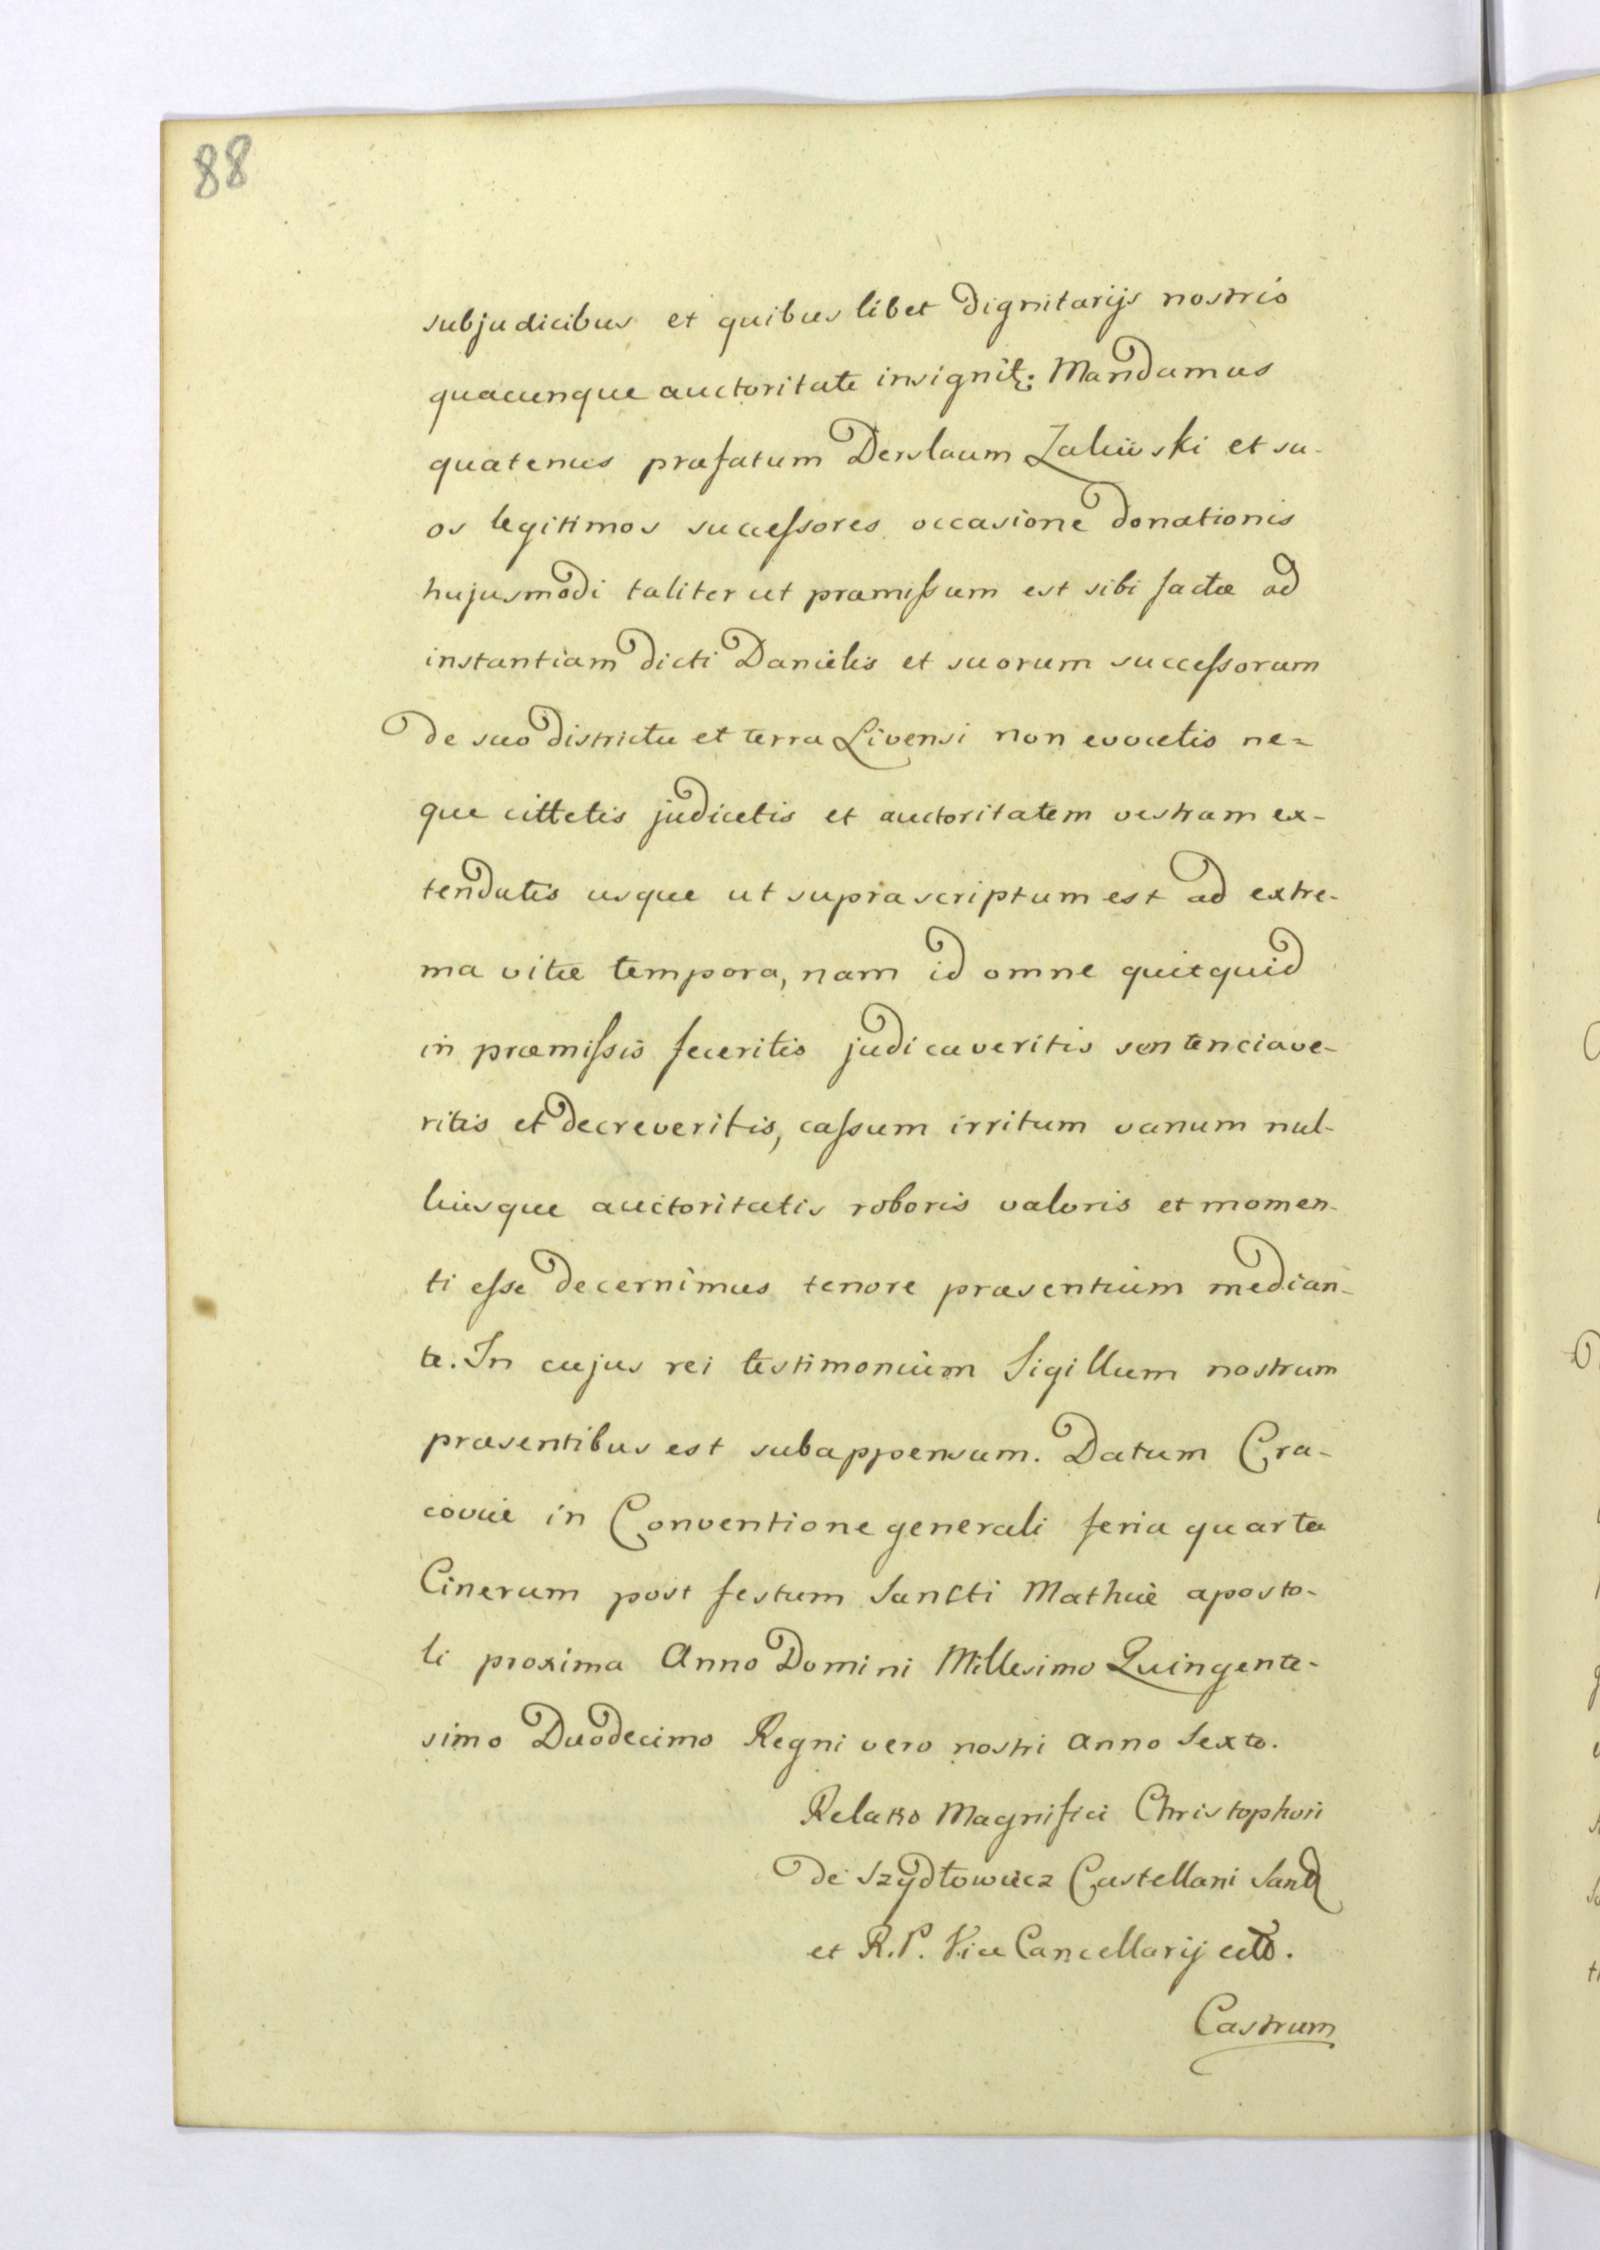 88
subjudicibus et quibus libet dignitarijs nostris
quacunque auctoritate insignit: Mandamus
quatenus præfatum Derslaum Zaliwski et su-
os legitimos successores occasione donationis
hujusmodi taliter ut præmissum est sibi factæ ad
instantiam dicti Danielis et suorum successorum
de suo districtu et terra Livensi non evocetis ne=
que cittetis judicetis et auctoritatem vestram ex-
tendatis usque ut suprascriptum est ad extre-
ma vitæ tempora, nam id omne quicquid
in præmissis feceritis judicaveritis sentenciave-
ritis et decreveritis, cassum irritum vanum nul-
liusque auctoritatis roboris valoris et momen-
ti esse decernimus tenore præsentium median-
te. In cujus rei testimonium Sigillum nostrum
præsentibus est subappensum. Datum Cra-
coviæ in Conventione generali feria quarta
Cinerum post festum Sancti Mathiæ aposto-
li proxima Anno Domini Millesimo Quingente-
simo Duodecimo Regni vero nostri anno Sexto.
Relatio Magnifici Christophori
de Szydłowiecz Castellani Sand
et R. P. Vice Cancellarij
Castrum